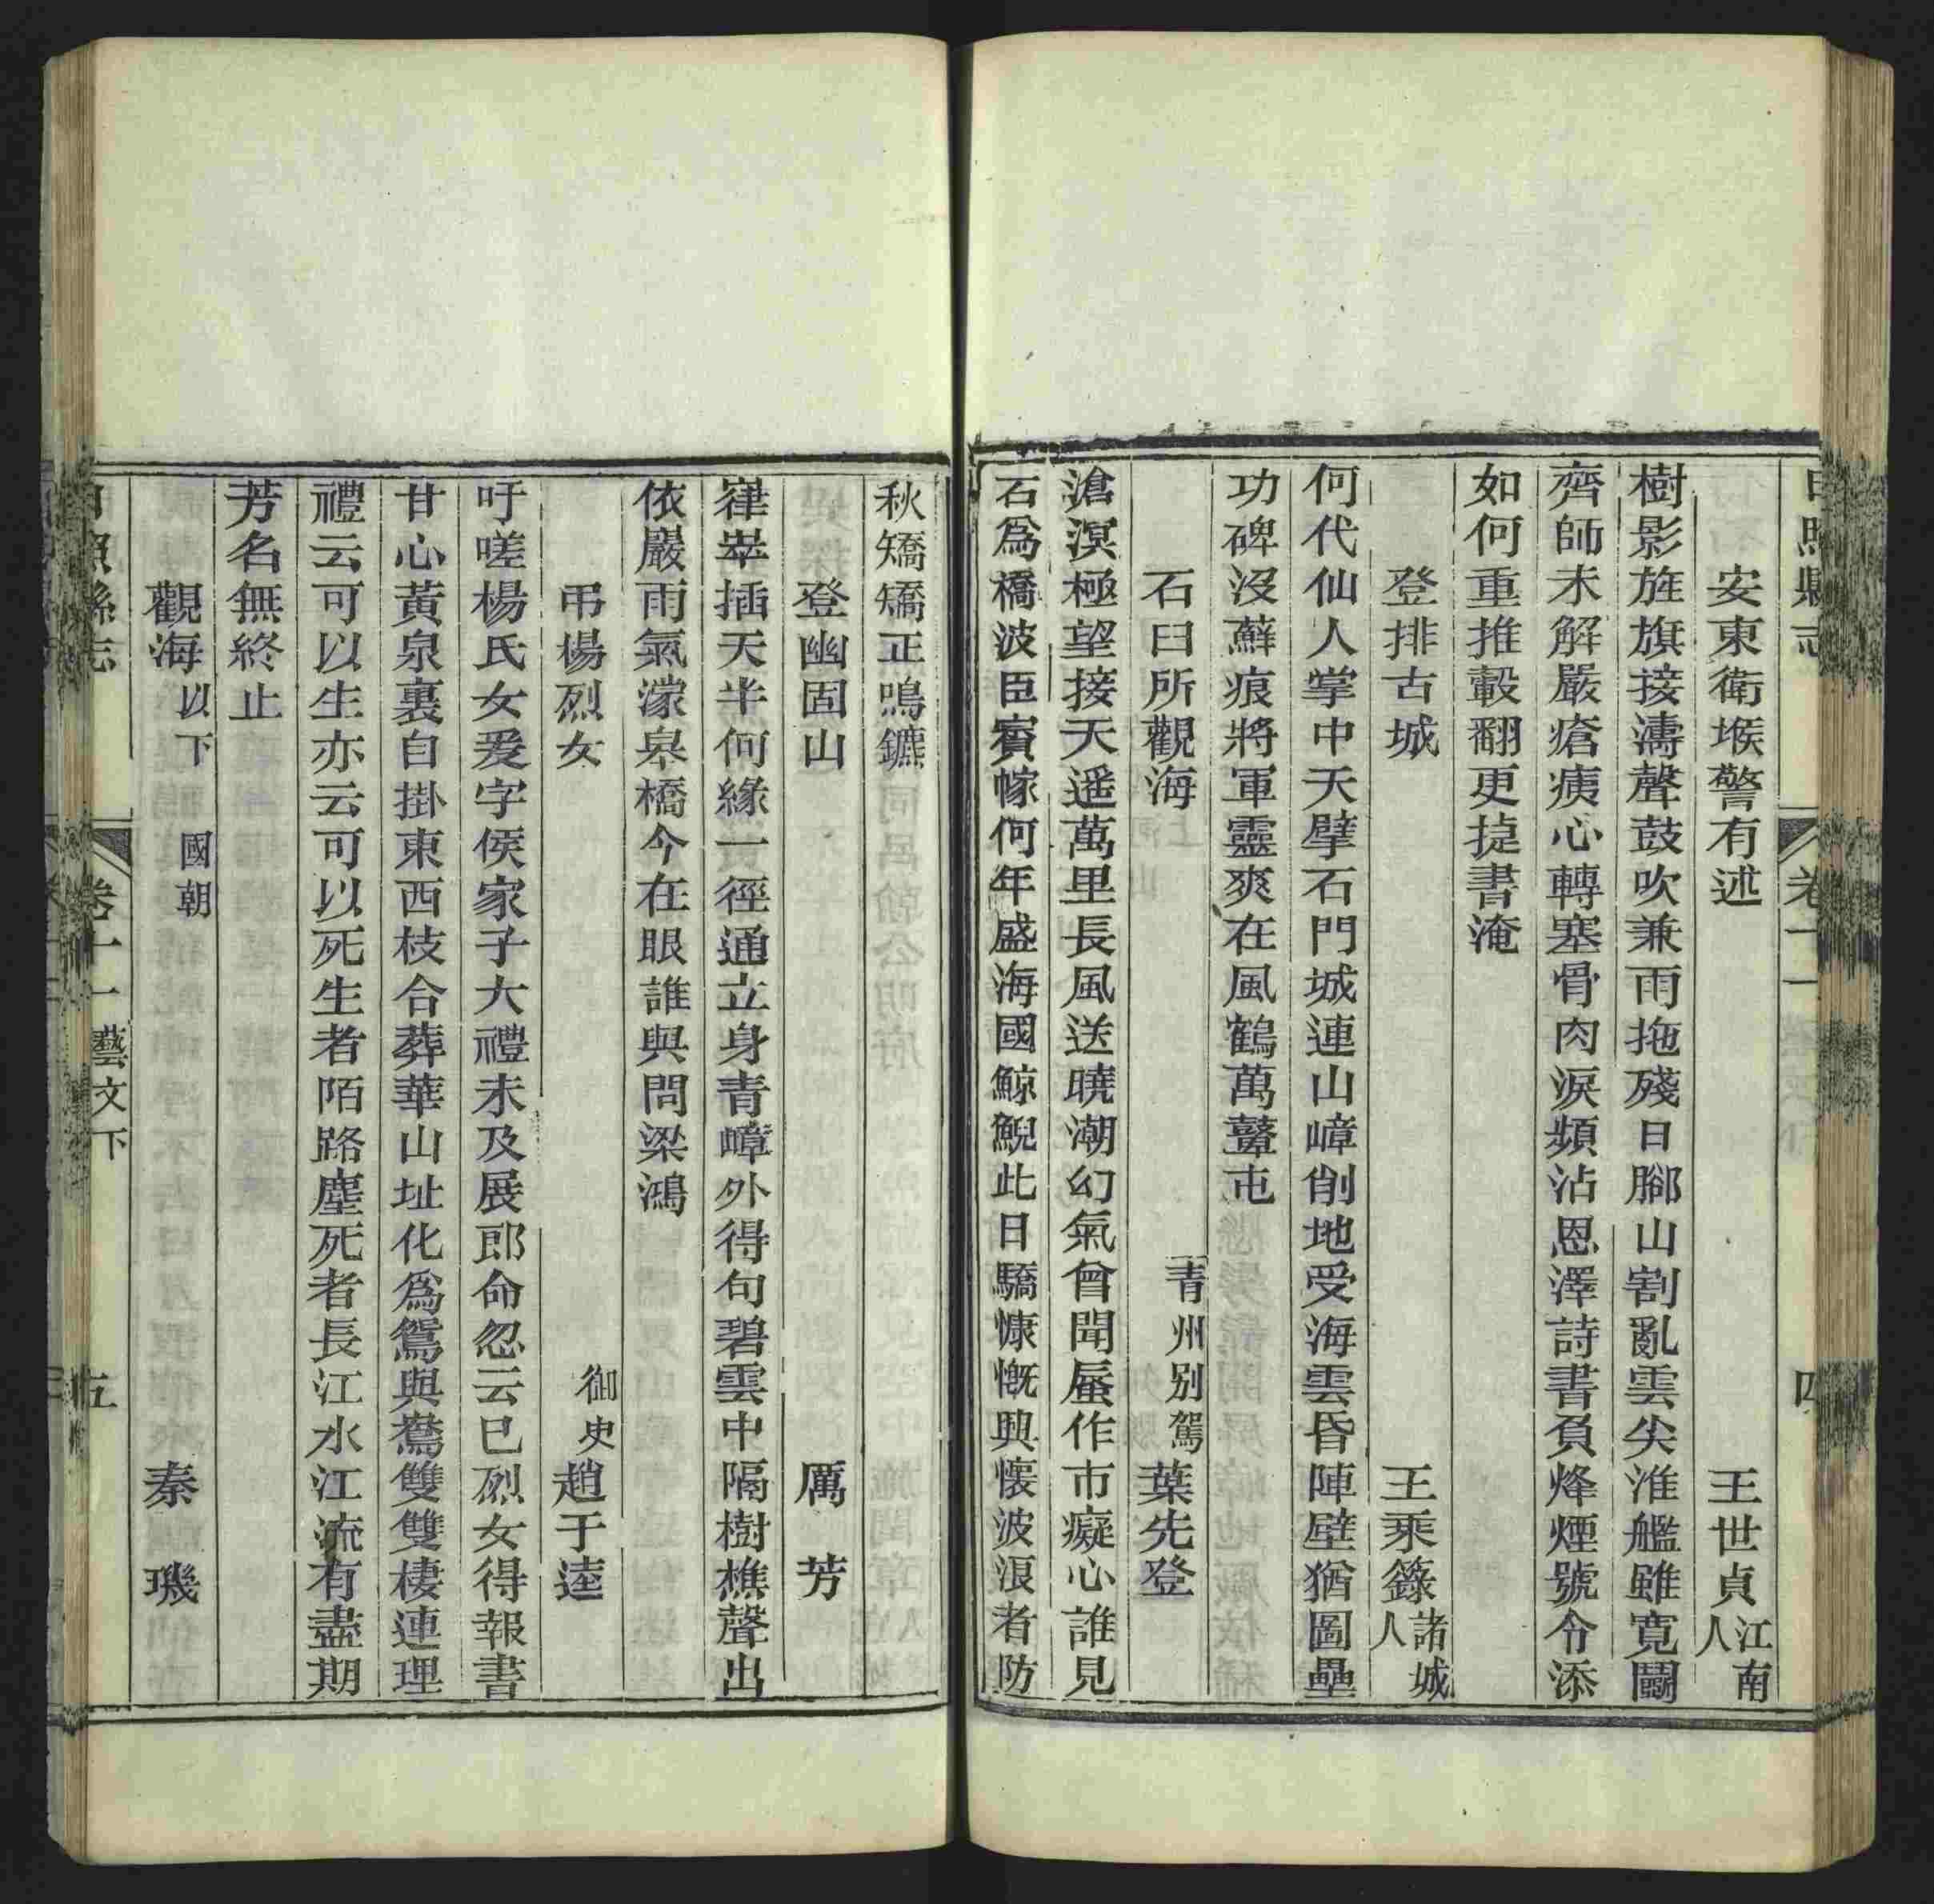 日照縣志　卷十一　四
安東衛堠警有述　王世貞江南人
樹影旌旗接濤聲鼓吹兼雨拖殘日腳山割亂雲尖淮艦雖寬鬭
齊師未解嚴瘡痍心轉塞骨肉淚頻沾恩澤詩書負烽煙號令添
如何重推轂翻更捷書淹
登排古城　王乘籙諸城人
何代仙人掌中天擘石門城連山嶂削地受海雲昏陣壁猶圖壘
功碑沒蘚痕將軍靈爽在風鶴萬鼙屯
石臼所觀海　青州別駕葉先登
滄溟極望接天遥萬里長風送曉潮幻氣曾聞蜃作市癡心誰見
石爲橋波臣賓幏何年盛海國鯨鯢此日驕慷慨興懷波浪者防
秋矯矯正鳴鑣
登幽固山　厲芳
嵂崒插天半何緣一徑通立身青嶂外得句碧雲中隔樹樵聲出
依巖雨氣濛臯橋今在眼誰與問梁鴻
弔楊烈女　御史趙于逵
吁嗟楊氏女爰字侯家子大禮未及展郎命忽云已烈女得報書
甘心黃泉裏自掛東西枝合葬華山址化爲鴛與鴦雙雙棲連理
禮云可以生亦云可以死生者陌路塵死者長江水江流有盡期
芳名無終止
觀海以下國朝　秦璣
日照縣志　卷十一藝文下　五